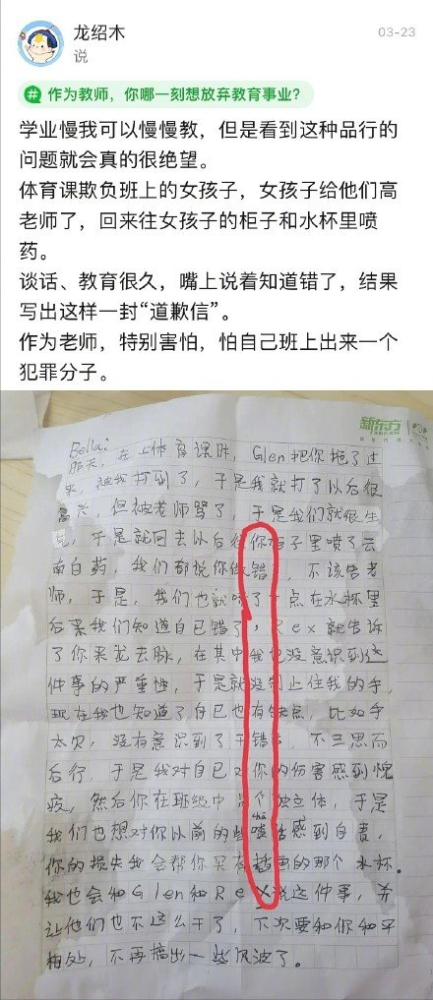 龙绍木
说
03-23
# 作为教师，你哪一刻想放弃教育事业？
学业慢我可以慢慢教，但是看到这种品行的
问题就会真的很绝望。
体育课欺负班上的女孩子，女孩子给他们高
老师了，回来往女孩子的柜子和水杯里喷
药。
谈话、教育很久，嘴上说着知道错了，结果
写出这样一封“道歉信”。
作为老师，特别害怕，怕自己班上出来一个
犯罪分子。
新东方
Bella:
昨天，在上体育课时，Glen把你拖了过
来，被我打到了，于是我就打了以后很
高兴，但被老师骂了，于是我们就很生
气，于是就回去以后往你柜子里喷了云
南白药，我们都说你做错，不该告老
师，于是，我们也就喷了一点在水杯里
后来我们知道自己错了，Rex就告诉
了你来龙去脉，在其中我也没意识到这
件事的严重性，于是就没制止住我的手，
现在我也知道了自己也有缺点，比如手
太欠，没有意识到了干错，不三思而
后行，于是我对自己对你的伤害感到愧
疚，然后你在班级中是个独立体，于是
我们也想对你以前的些 告感到自责，
你的损失我会帮你买有插画的那个水杯。
我也会和Glen和Rex说这件事，并
让他们也不这么干了，下次要和你和平
相处，不再搞出一些风波了。